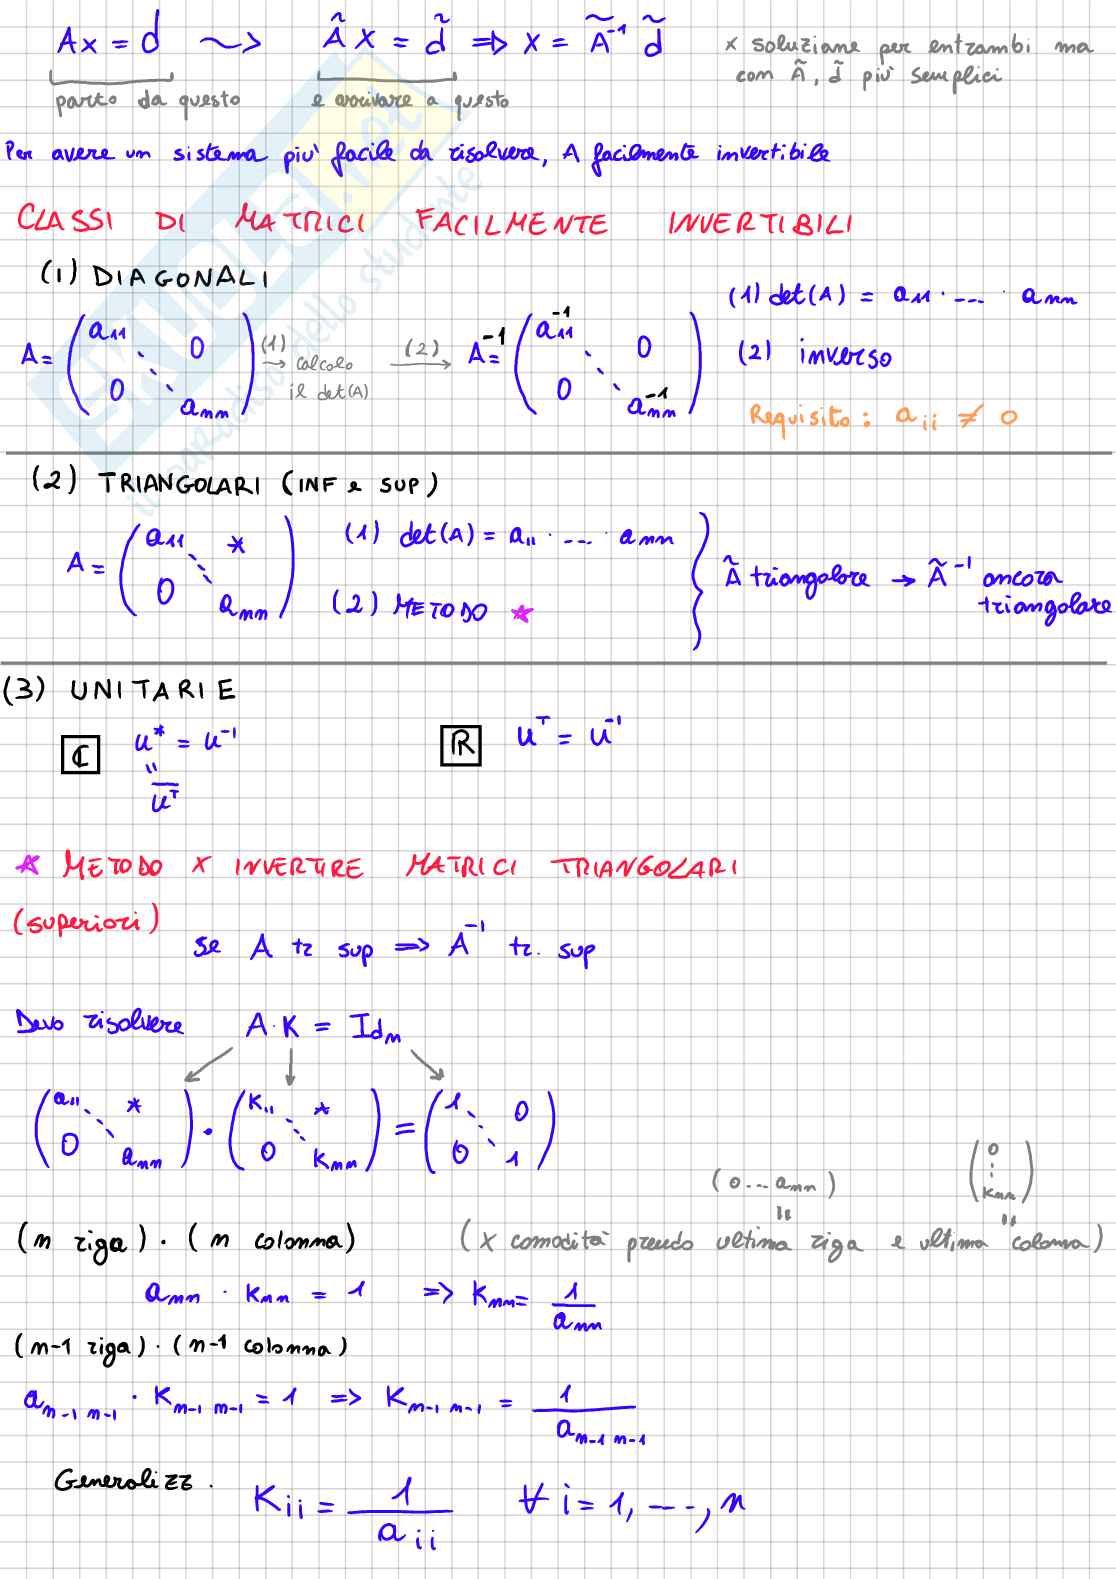 Ax = d ~> Ã x = d̃ => x = Ã⁻¹ d̃
x soluzione per entrambi ma
con Ã, d̃ più semplici
parto da questo e arrivare a questo
Per avere un sistema piu' facile da risolvere, A facilmente invertibile
CLASSI DI MATRICI FACILMENTE INVERTIBILI
(1) DIAGONALI
A = ( a₁₁ 0 0 aₙₙ ) (1) → calcolo il det(A) (2) → A⁻¹ = ( a₁₁⁻¹ 0 0 aₙₙ⁻¹ )
(1) det(A) = a₁₁ · --- · aₙₙ
(2) inverso
Requisito: aᵢᵢ ≠ 0
(2) TRIANGOLARI (INF e SUP)
A = ( a₁₁ * 0 aₙₙ )
(1) det(A) = a₁₁ · --- · aₙₙ
(2) METODO ☆
Ã triangolare → Ã⁻¹ ancora
triangolare
(3) UNITARIE
ℂ u* = u⁻¹
"
u̅ᵀ
ℝ uᵀ = u⁻¹
☆ METODO x INVERTIRE MATRICI TRIANGOLARI
(superiori)
se A tr sup => A⁻¹ tr. sup
Devo risolvere A·K = Idₙ
( a₁₁ * 0 aₙₙ ) · ( K₁₁ * 0 Kₙₙ ) = ( 1 0 0 1 )
( 0 --- aₙₙ )
( 0 ⋮ Kₙₙ )
(n riga) · (n colonna) (x comodità prendo ultima riga e ultima colonna)
aₙₙ · Kₙₙ = 1 => Kₙₙ = 1 / aₙₙ
(n-1 riga) · (n-1 colonna)
aₙ₋₁ ₙ₋₁ · Kₙ₋₁ ₙ₋₁ = 1 => Kₙ₋₁ ₙ₋₁ = 1 / aₙ₋₁ ₙ₋₁
Generalizz. Kᵢᵢ = 1 / aᵢᵢ ∀ i = 1, ---, n